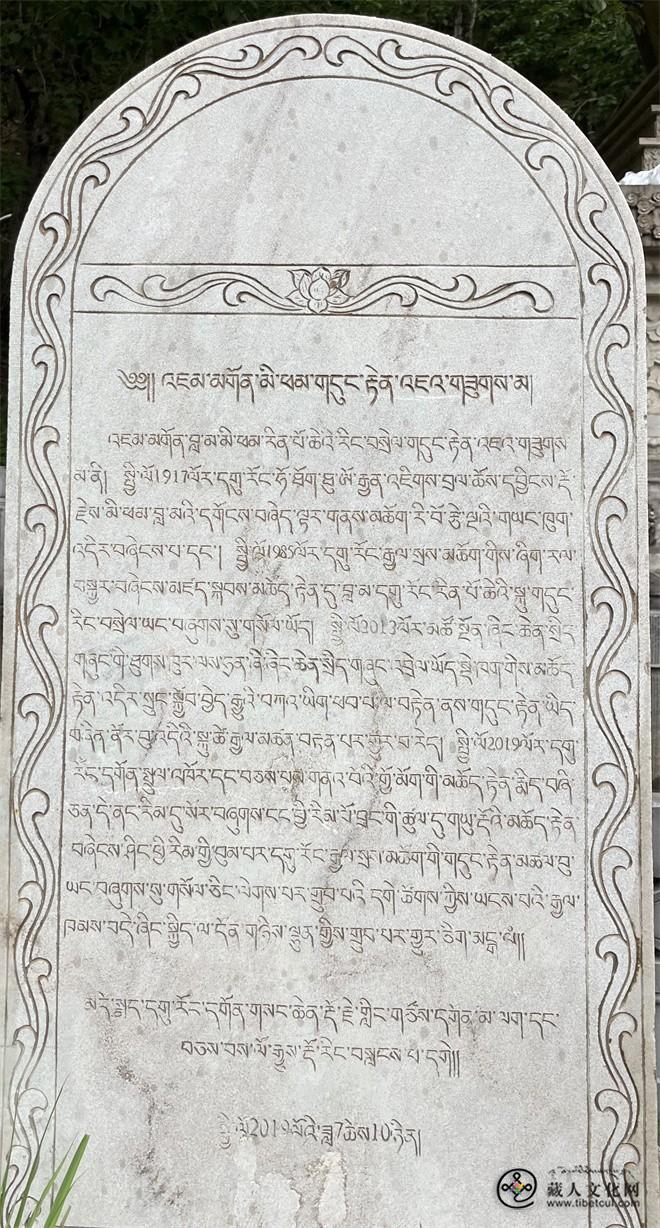 ༄༅།། འཇམ་མགོན་མི་ཕམ་གདུང་རྟེན་འཇའ་གཟུགས་མ།
འཇམ་མགོན་བླ་མ་མི་ཕམ་རིན་པོ་ཆེའི་རིང་བསྲེལ་གདུང་རྟེན་འཇའ་གཟུགས་
མ་ནི། སྤྱི་ལོ1917ལོར་དགུ་རོང་ཧོ་ཐོག་ཐུ་ཨོ་རྒྱན་འཇིགས་བྲལ་ཆོས་དབྱིངས་རྡོ་
རྗེས་མི་ཕམ་བླ་མའི་དགོངས་བཞེད་ལྟར་གནས་མཆོག་རི་བོ་རྩེ་ལྔའི་གཡང་ཁུག་
འདིར་བཞེངས་པ་དང་། སྤྱི་ལོ1985ལོར་དགུ་རོང་རྒྱལ་སྲས་མཆོག་གིས་ཞིག་རལ་
བསྐྱར་བཞེངས་མཛད་སྐབས་མཆོད་རྟེན་དུ་བླ་མ་དགུ་རོང་རིན་པོ་ཆེའི་སྐུ་གདུང་
རིང་བསྲེལ་ཡང་བཞུགས་སུ་གསོལ་ཡོད། སྤྱི་ལོ2013ལོར་མཚོ་སྔོན་ཞིང་ཆེན་སྲིད་
གཞུང་གི་ཐུགས་ཁུར་ལས་ཧྲན་ཞི་ཞིང་ཆེན་སྲིད་གཞུང་འབྲེལ་ཡོད་སྡེ་ཁག་གིས་མཆོད་
རྟེན་འདིར་སྲུང་སྐྱོབ་བྱེད་རྒྱུའི་བཀའ་ཡིག་ཕབ་པ་ལ་བརྟེན་ནས་གདུང་རྟེན་ཡིད་
བཞིན་ནོར་བུ་འདིའི་སྐུ་ཚེ་རྒྱལ་མཚན་བརྟན་པར་གྱུར་བ་རེད། སྤྱི་ལོ2019ལོར་དགུ་
རོང་དགོན་སྤྲུལ་འཁོར་དང་བཅས་པས་གནའ་བོའི་ཀྱི་མོག་གི་མཆོད་རྟེན་སྨིད་བཞི་
ཅན་དེ་ནང་རིམ་དུ་སོར་བཞུགས་ངང་ཕྱི་རིམ་ཕོ་བྲང་གི་ཚུལ་དུ་གཡུ་རྡོའི་མཆོད་རྟེན་
བཞེངས་ཤིང་ཕྱི་རིམ་གྱི་བུམ་པར་དགུ་རོང་རྒྱལ་སྲས་མཆོག་གི་གདུང་རྟེན་མཚལ་བུ་
ཡང་བཞུགས་སུ་གསོལ་ཅིང་ལེགས་པར་གྲུབ་པའི་དགེ་ཚོགས་ཀྱིས་ཡངས་པའི་རྒྱལ་
ཁམས་བདེ་ཞིང་སྐྱིད་ལ་དོན་གཉིས་ལྷུན་གྱིས་གྲུབ་པར་གྱུར་ཅིག་མངྒ་ལཾ།།
མདོ་སྨད་དགུ་རོང་དགོན་གསང་ཆེན་རྡོ་རྗེ་གླིང་གཙོས་དགོན་མ་ལག་དང་
བཅས་པས་ལོ་རྒྱུས་རྡོ་རིང་བསླངས་པ་དགེ།།
སྤྱི་ལོ2019ལོའི་ཟླ7ཚེས10ཉིན།
藏人文化网
www.tibetcul.com